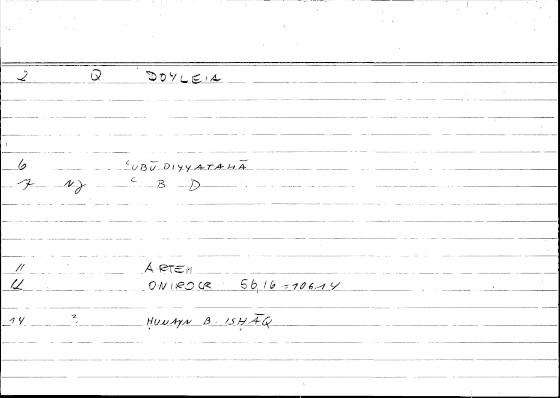 2 Q DOYLEIA
6 ʿUBŪDIYYATAHĀ
7 NJ ʿ B D
11 ARTEM
12 ONIROCR 56,16 = 106.14
14 ḤUNAYN B. ISḤĀQ